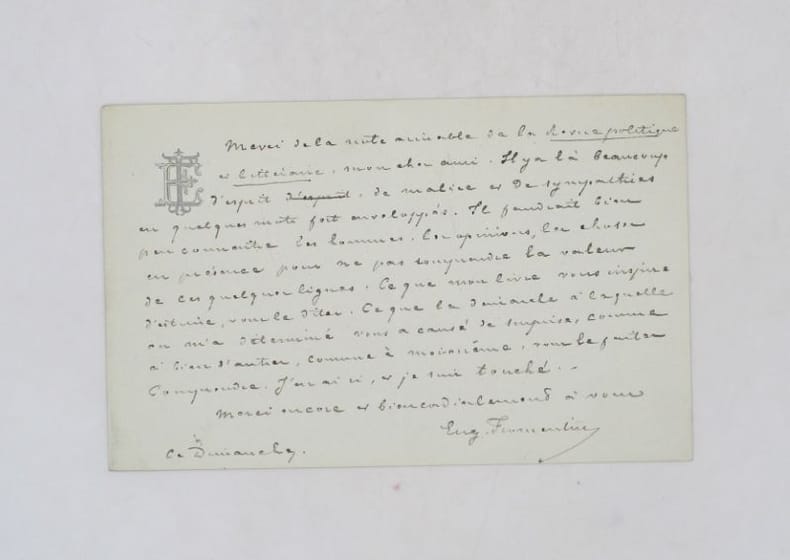 EF
Merci de la note aimable de la Revue politique
et littéraire, mon cher ami. Il y a là beaucoup
d'esprit d'esprit, de malice et de sympathies
en quelques mots fort enveloppés. Il faudrait bien
peu connaître les hommes, les opinions, les choses
en présence pour ne pas comprendre la valeur
de ces quelques lignes. Ce que mon livre vous inspire
d'estime, vous le dites. Ce que la démarche à laquelle
on m'a déterminé vous a causé de surprise, comme
à bien d'autres, comme à moi-même, vous le faites
comprendre. J'en ai ri, et je suis touché.
Merci encore et bien cordialement à vous
Eug. Fromentin
Ce Dimanche.